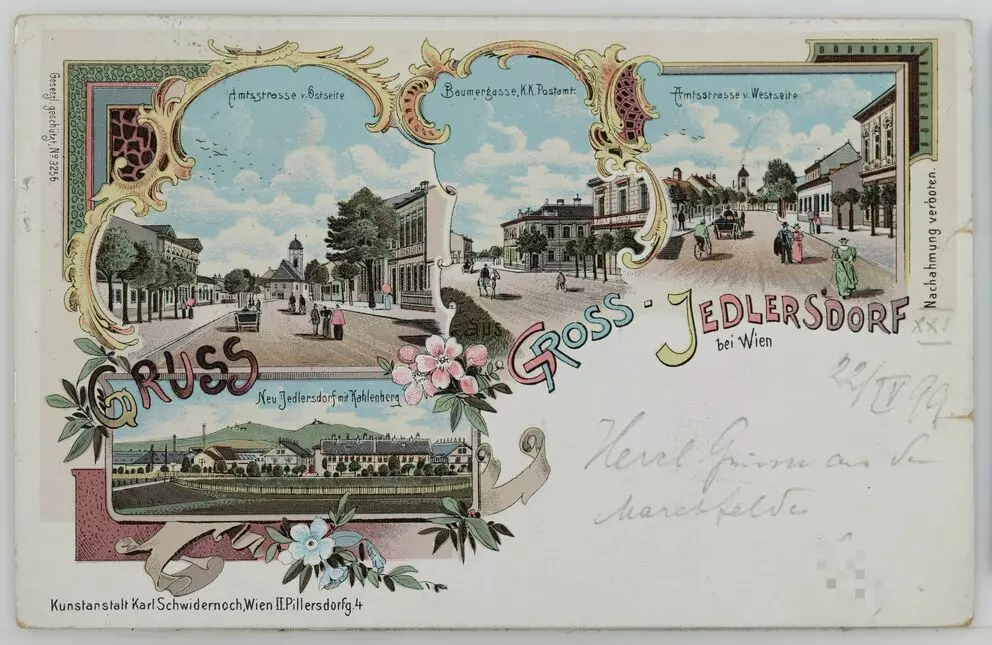 Gesetzl. geschützt, Nº 3256.
Amtsstrasse v. Ostseite
Baumergasse, K.K. Postamt.
Amtsstrasse v. Westseite
Nachahmung verboten.
GRUSS aus GROSS-JEDLERSDORF
bei Wien
XXI
22/IV 99
Neu Jedlersdorf mit Kahlenberg
Herzl Grüsse aus dem
Marchfelde
Kunstanstalt Karl Schwidernoch, Wien II. Pillersdorfg. 4